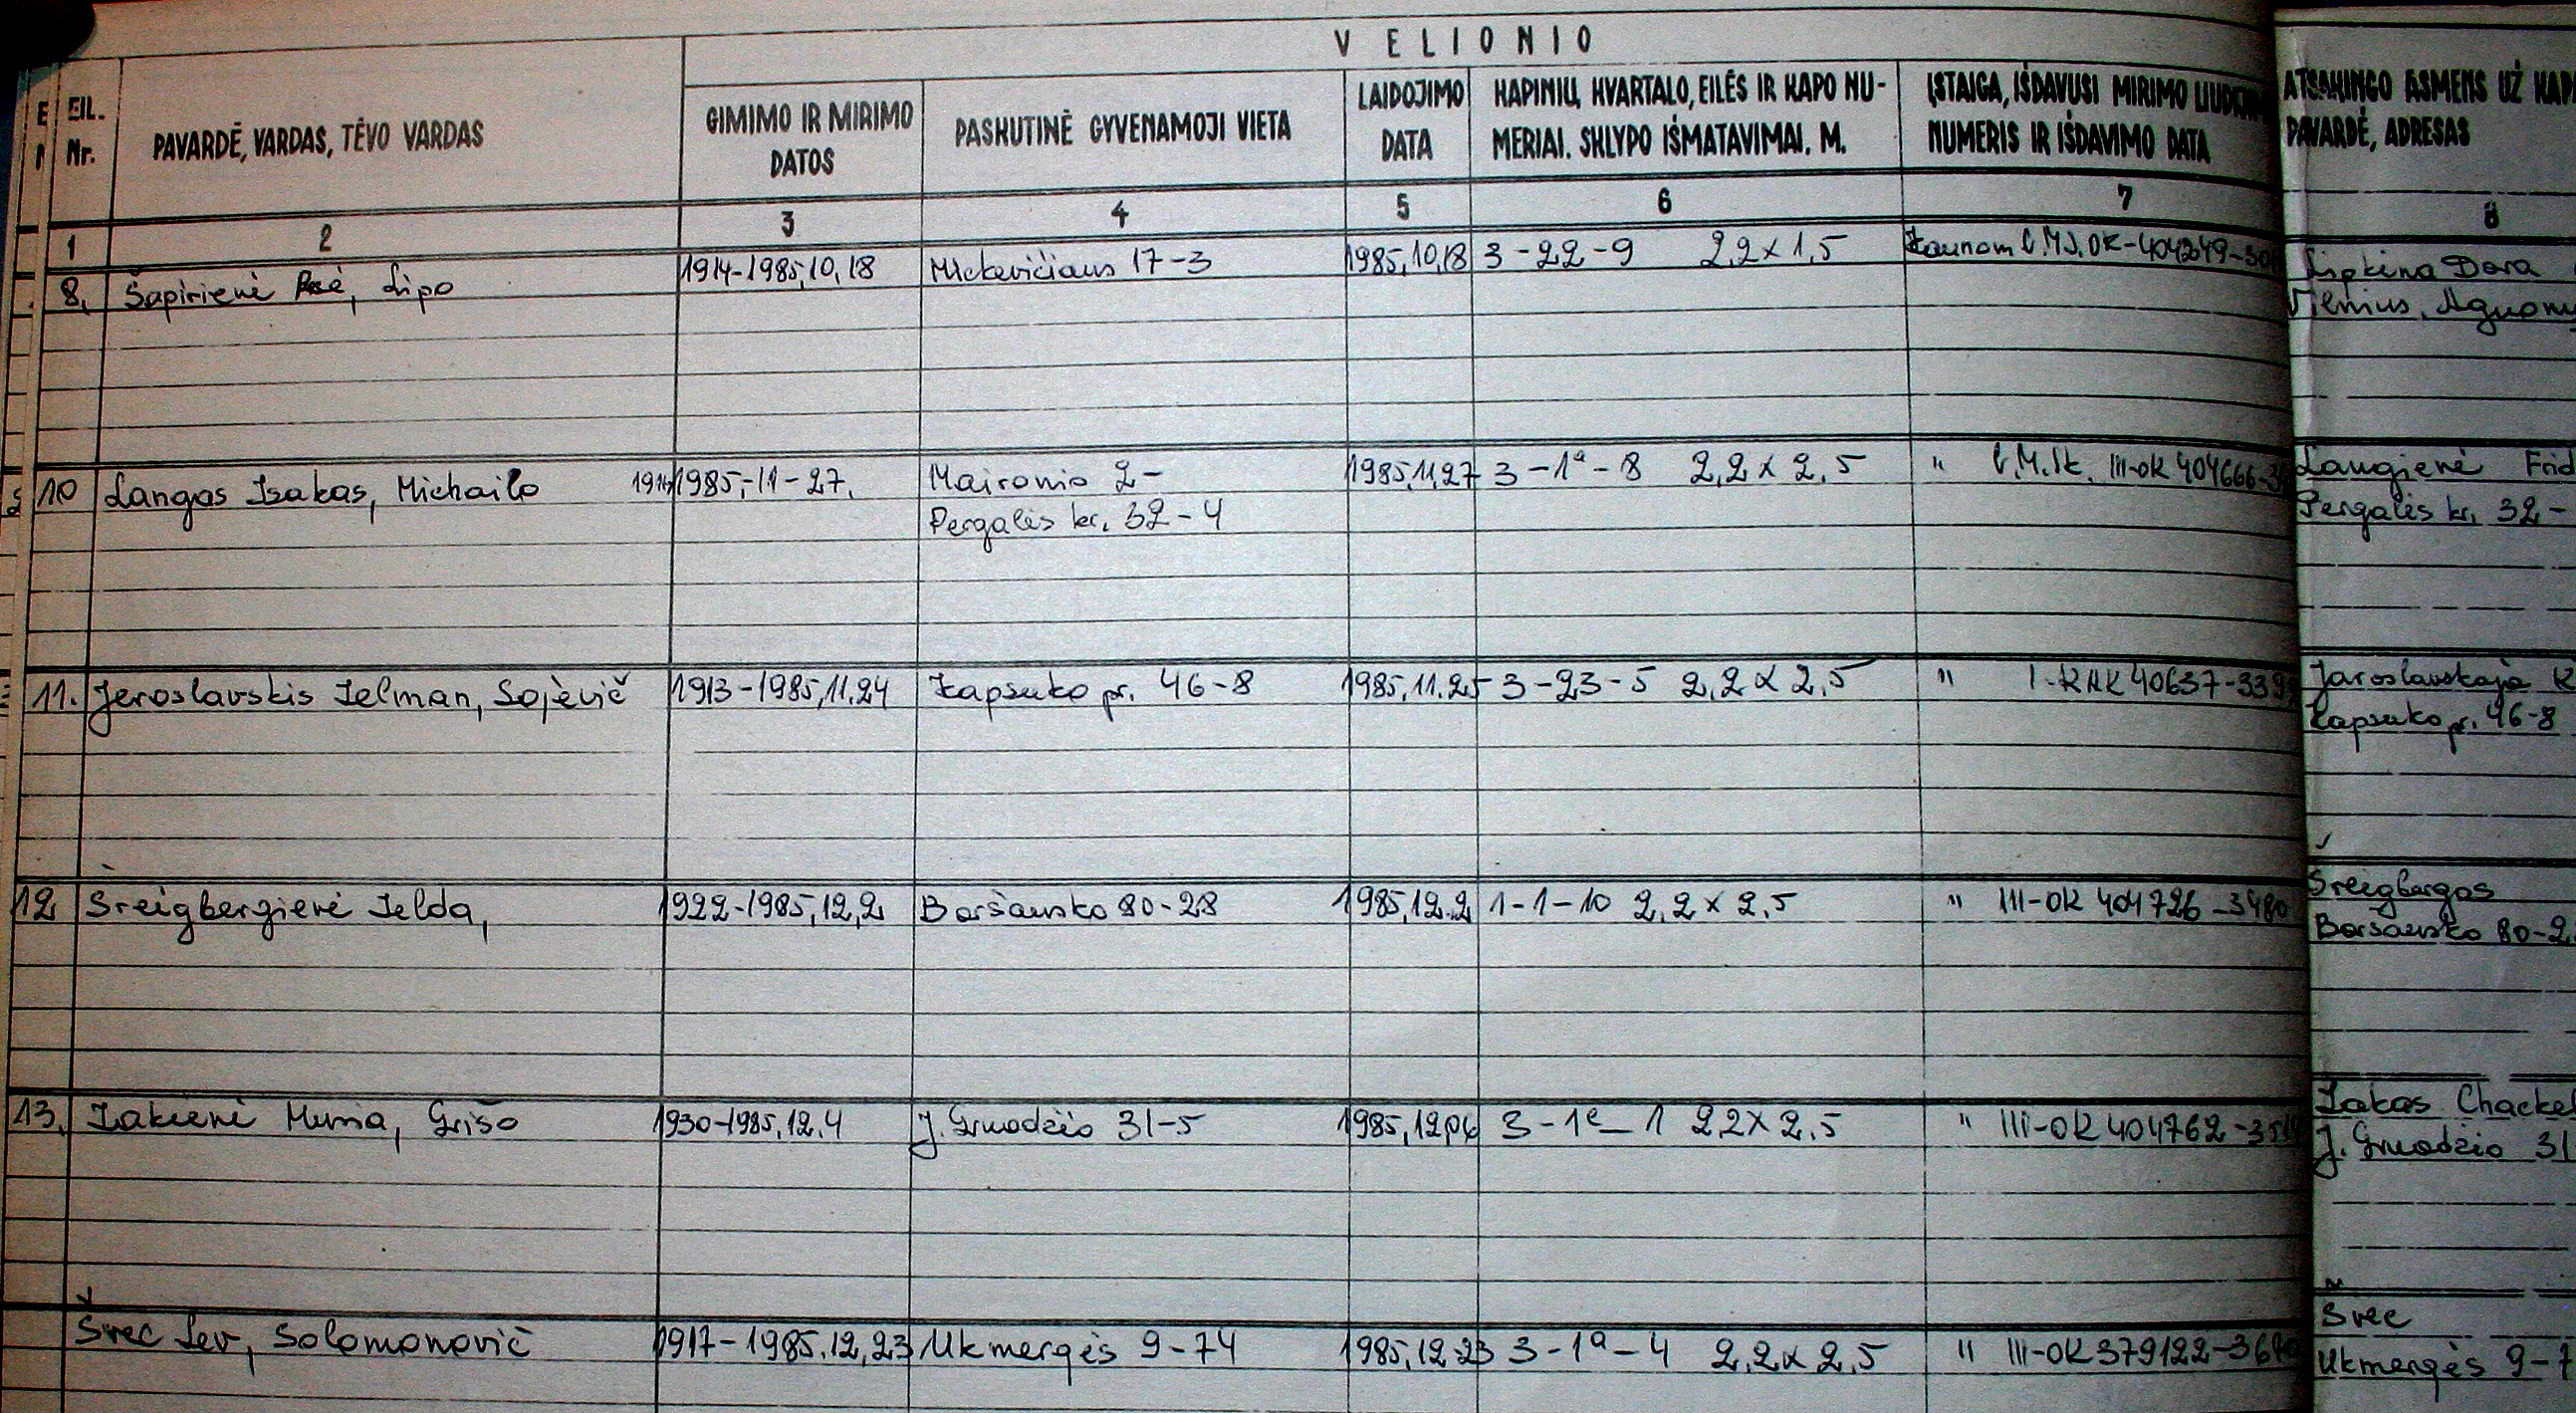 VELIONIO
EIL. Nr.
PAVARDĖ, VARDAS, TĖVO VARDAS
GIMIMO IR MIRIMO DATOS
PASKUTINĖ GYVENAMOJI VIETA
LAIDOJIMO DATA
KAPINIŲ, KVARTALO, EILĖS IR KAPO NU-
MERIAI. SKLYPO IŠMATAVIMAI. M.
ĮSTAIGA, IŠDAVUSI MIRIMO
NUMERIS IR IŠDAVIMO DATA
ATSAKINGO ASMENS UŽ KAP
PAVARDĖ, ADRESAS
1 2 3 4 5 6 7 8
8. Šapirienė Lipo 1914-1985,10,18 Mickevičiaus 17-3 1985,10,18 3-22-9 2,2x1,5 OK-404249 Lipkina Dora
Vilnius,
10 Langas Isakas, Michailo 1985,-11-27. Maironio 2- 1985,11,27 3-1ª-8 2,2x2,5 " III-OK 404666 Langienė Frid
Pergalės kr. 32-4 Pergalės kr. 32-
11. Jeroslavskis Zelman, 1913-1985,11,24 Kapsuko pr. 46-8 1985,11.25 3-23-5 2,2x2,5 " 40637-339 Jaroslavskaja
Kapsuko pr. 46-8
12 Šreigbergienė Zelda, 1922-1985,12,2 Boršausko 80-28 1985,12.2 1-1-10 2,2x2,5 " III-OK 404726-3480 Šreigbergas
Boršausko 80-2
13. Zakienė Grišo 1930-1985,12.4 J. Gruodžio 31-5 3-1e-1 2,2x2,5 " III-OK 404762 Zakas Chackel
J. Gruodžio 31
Švec Lev, Solomonovič 1917-1985.12,23 Ukmergės 9-74 1985,12-23 3-1ª-4 2,2x2,5 " III-OK 379122 Švec
Ukmergės 9-7